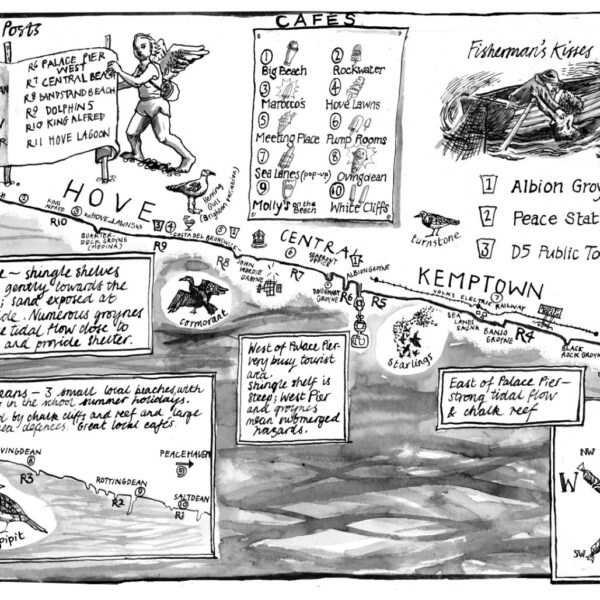 Posts
R6 PALACE PIER
WEST
R7 CENTRAL BEACH
R8 BANDSTAND BEACH
R9 DOLPHINS
R10 KING ALFRED
R11 HOVE LAGOON
CAFES
1 Big Beach
2 Rockwater
3 Marrocco's
4 Hove Lawns
5 Meeting Place
6 Pump Rooms
7 Sea Lanes (pop-up)
8 Ovingdean
9 Molly's on the Beach
10 White Cliffs
Fisherman's Kisses
1 Albion Groy
2 Peace Stat
3 D5 Public To
HOVE
Herring
Gull
(Brighton variation)
2
KING
ALFRED
R10
3
HOVE LAWNS
4
QUARTER-
DECK GROYNE
(MEDINA)
R9
COSTA DEL BRUNSWICK
5
R8
JOHN
WORDIE
GROYNE
CENTRAL
6
R7
DOUGHNUT
GROYNE
1
ALBION GROYNE
R6
R5
turnstone
KEMPTOWN
VOLKS ELECTRIC RAILWAY
7
SEA
LANES
SAUNA
BANJO
GROYNE
R4
BLACK
ROCK GROY
Cormorant
Starlings
e ~ shingle shelves
gently towards the
; sand exposed at
ide. Numerous groynes
e tidal flow close to
and provide shelter.
West of Palace Pier-
very busy tourist
area.
Shingle shelf is
steep; West Pier
and groynes
mean submerged
hazards.
East of Palace Pier~
strong tidal flow
& chalk reef
eans - 3 small local beaches, with
in the school summer holidays.
d by chalk cliffs and reef and large
ea defences. Great local cafes.
VINGDEAN
8
R3
ROTTINGDEAN
9
R2
PEACEHAVEN
SALTDEAN
10
R1
pipit
NW
W
SW